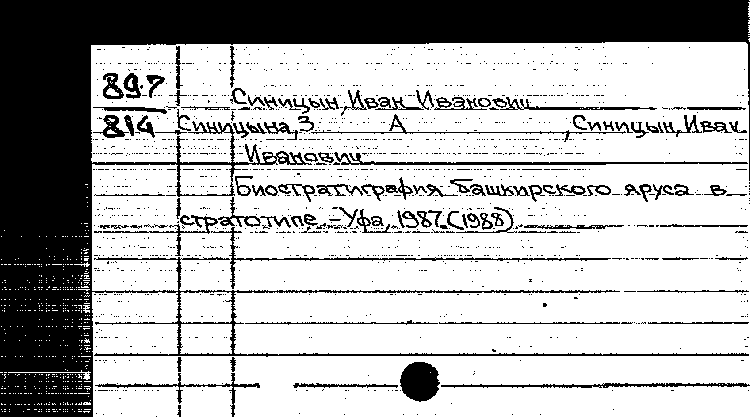 897
Синицын, Иван Иванович
814 Синицына, З А , Синицын, Иван
Иванович
Биостратиграфия башкирского яруса в
стратотипе. – Уфа, 1987. (1988)